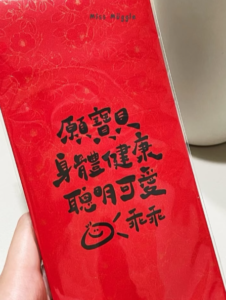 Miss Maggie
願寶貝
身體健康
聰明可愛
乖乖